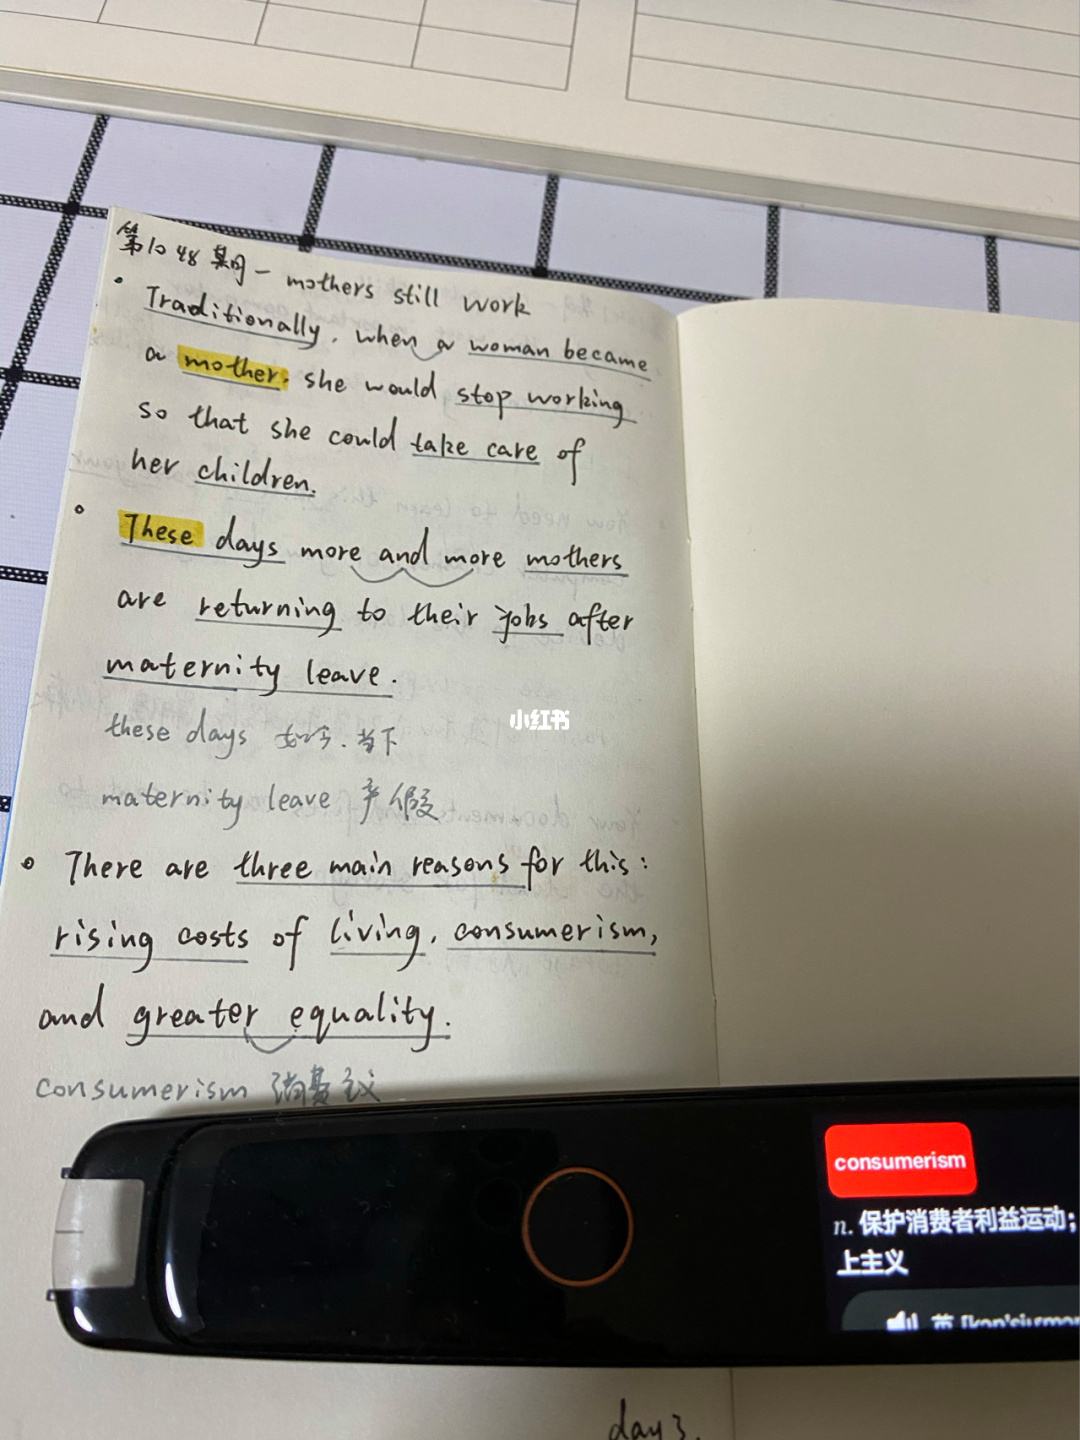 第1048期 - mothers still work
• Traditionally, when a woman became
a mother, she would stop working
so that she could take care of
her children.
• These days more and more mothers
are returning to their jobs after
maternity leave.
these days 如今.当下
maternity leave 产假
• There are three main reasons for this:
rising costs of living, consumerism,
and greater equality.
consumerism 消费主义
小红书
consumerism
n. 保护消费者利益运动;
上主义
英
day3.